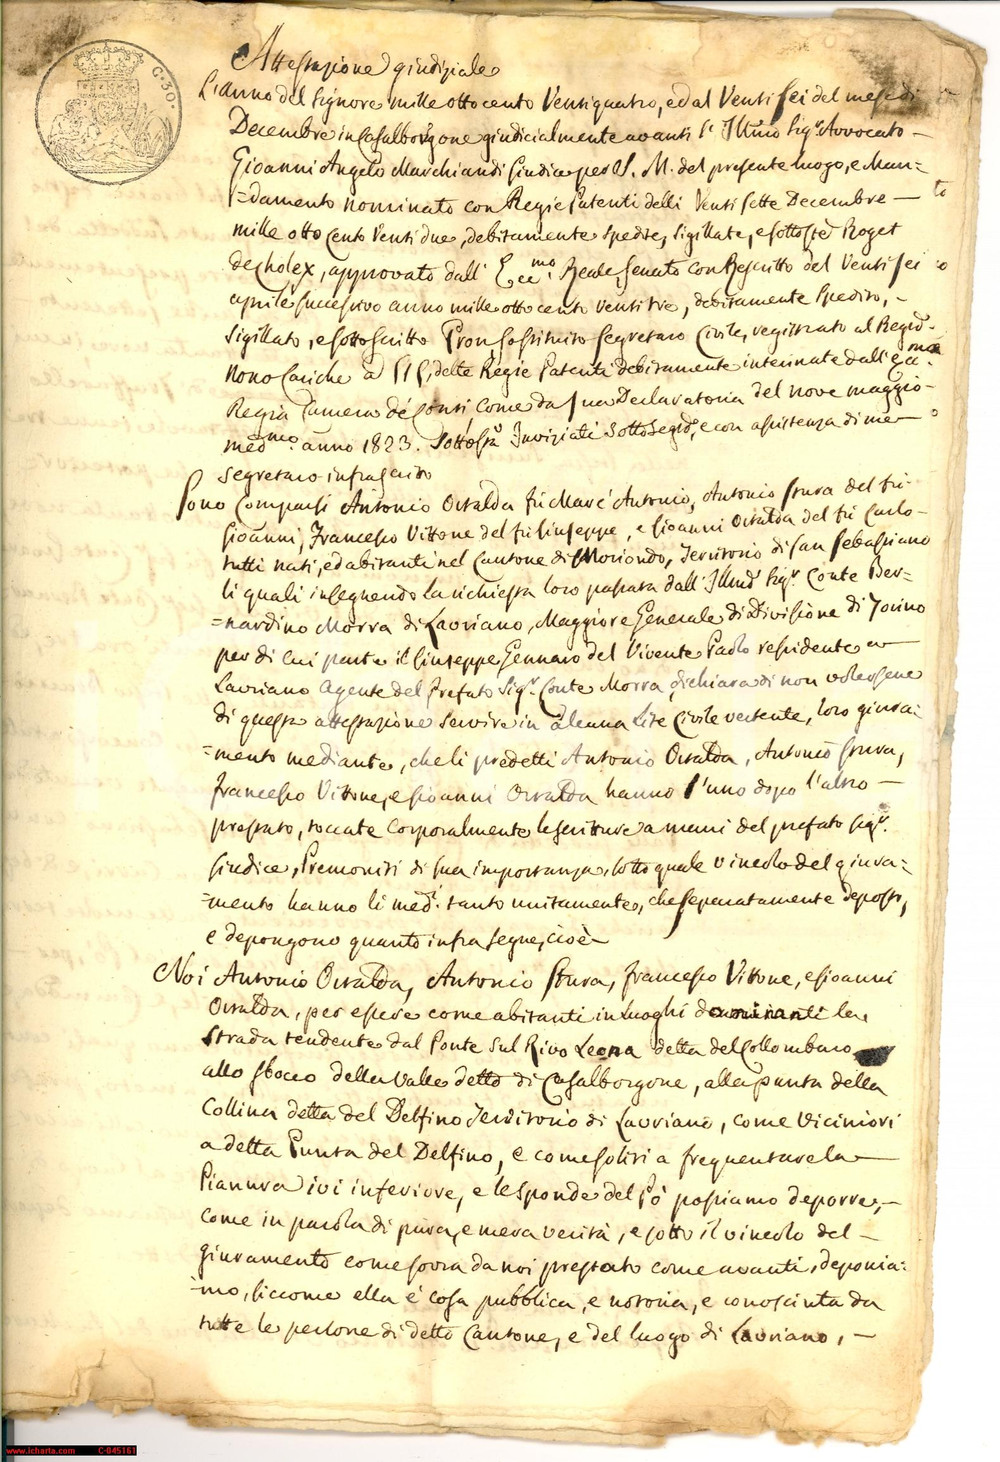 C. 30.
Attestazione giudiziale
L'anno del Signore mille otto cento Ventiquatro, ed al Venti sei del mese di
Decembre in Casalborgone giudicialmente avanti l' Ill.mo Sig.r Avvocato —
Gioanni Angelo Marchiandi Giudice per S. M. del presente luogo, e Man=
=damento nominato con Regie Patenti delli Venti sette Decembre —
mille otto cento Venti due, debitamente spedite, sigillate, e sottoste Roget
de Cholex, approvato dall' Ecc.mo Reale Senato con Rescritto del Venti sei
aprile successivo anno mille otto cento venti tre, debitamente spedito, -
sigillato, e sottoscritto Pron sostituito segretaro Civile, registrato al Regio.
Nono Cariche a 515, dette Regie Patenti debitamente interinate dall' Ecc.ma
Regia Camera de Conti come da sua Declaratoria del nove maggio -
med.mo anno 1823. Sottost.a Inviziati Sotto Segr.o, e con assistenza di me —
Segretaro infrascritto
Sono Comparsi Antonio Osvalda fu Marc' Antonio, Antonio Stura del fu
Gioanni, Francesco Vittone del fu Giuseppe, e Gioanni Osvalda del fu Carlo -
tutti nati, ed abitanti nel Cantone di Moriondo, Territorio di San Sebastiano
li quali inseguendo la richiesta loro passata dall' Ill.mo Sig.r Conte Ber=
=nardino Morra di Lavriano, Maggiore Generale di Divisione di Torino
per di lui parte il Giuseppe Gennaro del Vivente Paolo residente a
Lavriano Agente del prefato Sig.r Conte Morra, dichiara di non volersene
di questa attestazione servire in alcuna Lite Civile vertente, loro giura=
=mento mediante, che li predetti Antonio Osvalda, Antonio Stura,
Francesco Vittone, e Gioanni Osvalda hanno l'uno dopo l'altro —
prestato, toccate corporalmente le scritture a mani del prefato Sig.r
Giudice, Premoniti di sua importanza, sotto quale vincolo del giura=
=mento hanno li med.i tanto unitamente, che separatamente deposto,
e depongono quanto infra segue, cioè —
Noi Antonio Osvalda, Antonio Stura, Francesco Vittone, e Gioanni
Osvalda, per essere come abitanti in luoghi dominanti la
Strada tendente dal Ponte sul Rivo Leona detta del Collombaro
allo sbocco della Valle detta di Casalborgone, alla punta della
Collina detta del Delfino Territorio di Lavriano, come viciniori
a detta Punta del Delfino, e come soliti a frequentare la —
Pianura ivi inferiore, e le sponde del Pò possiamo deporre, —
come in parola di pura, e mera verità, e sotto il vincolo del —
giuramento come sovra da noi prestato come avanti, deponia=
=mo, siccome ella è cosa pubblica, e notoria, e conosciuta da
tutte le persone di detto Cantone, e del luogo di Lavriano, —
www.icharta.com C-045161